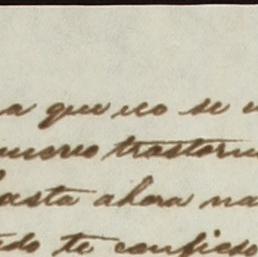 a que eco se
nuevo trastorn
hasta ahora na
do te confieso